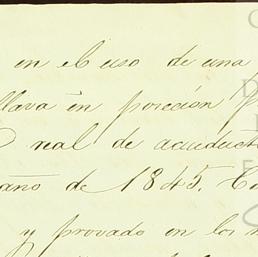 en el uso de una
llava en posecion
real de acueduct
año de 1845. Co
y provado en los